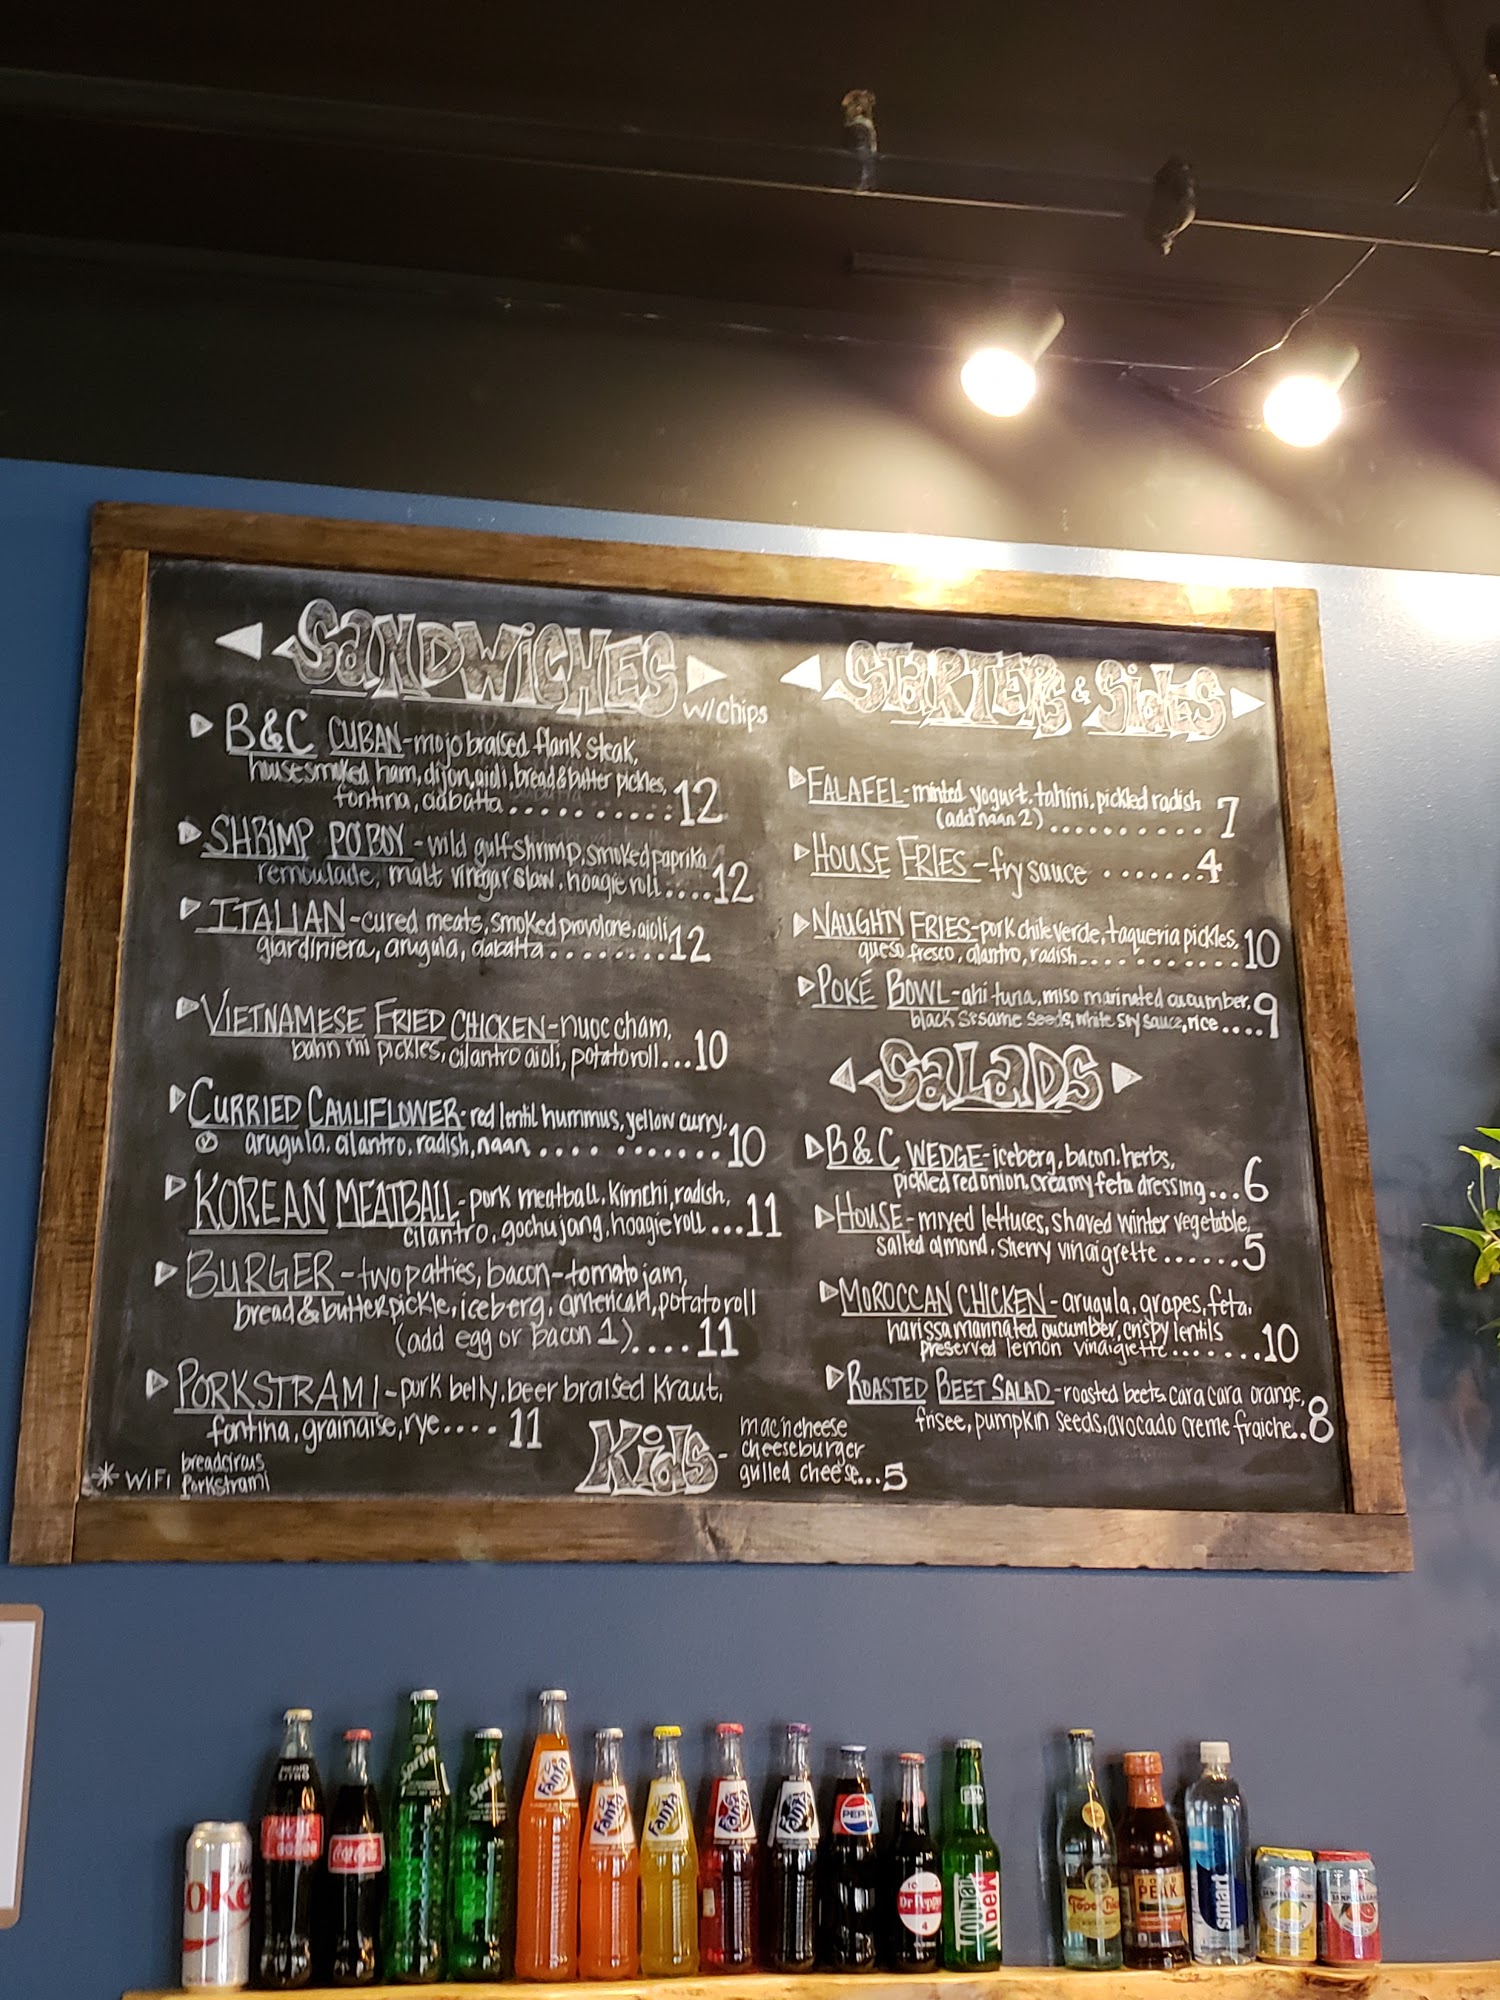 SANDWICHES
w/chips
B&C CUBAN-mojo braised flank steak,
house smoked ham, dijon, aioli, bread & butter pickles,
fontina, ciabatta..........12
SHRIMP PO BOY-wild gulf shrimp, smoked paprika
remoulade, malt vinegar slaw, hoagie roll....12
ITALIAN-cured meats, smoked provolone, aioli,
giardiniera, arugula, ciabatta........12
VIETNAMESE FRIED CHICKEN-nuoc cham,
bahn mi pickles, cilantro aioli, potato roll...10
CURRIED CAULIFLOWER-red lentil hummus, yellow curry,
V arugula, cilantro, radish, naan...........10
KOREAN MEATBALL-pork meatball, kimchi, radish,
cilantro, gochujang, hoagie roll...11
BURGER-two patties, bacon-tomato jam,
bread & butter pickle, iceberg, american, potato roll
(add egg or bacon 1)....11
PORKSTRAMI-pork belly, beer braised kraut,
fontina, grainaise, rye....11
* WIFI breadcircus
porkstrami
Kids-
mac'n cheese
cheeseburger
grilled cheese...5
STARTERS & SIDES
FALAFEL-minted yogurt, tahini, pickled radish
(add naan 2)..........7
HOUSE FRIES-fry sauce.......4
NAUGHTY FRIES-pork chile verde, taqueria pickles,
queso fresco, cilantro, radish............10
POKÉ BOWL-ahi tuna, miso marinated cucumber,
black sesame seeds, white soy sauce, rice....9
SALADS
B&C WEDGE-iceberg, bacon, herbs,
pickled red onion, creamy feta dressing...6
HOUSE-mixed lettuces, shaved winter vegetable,
salted almond, sherry vinaigrette......5
MOROCCAN CHICKEN-arugula, grapes, feta,
harissa marinated cucumber, crispy lentils
preserved lemon vinaigrette.......10
ROASTED BEET SALAD-roasted beets, cara cara orange,
frisee, pumpkin seeds, avocado creme fraiche..8
MEDIO
LITRO
Sprite
Sprite
Fanta
Fanta
Fanta
Fanta
Fanta
PEPSI
Dr Pepper
MTN DEW
Topo Chico
GOLD
PEAK
smart